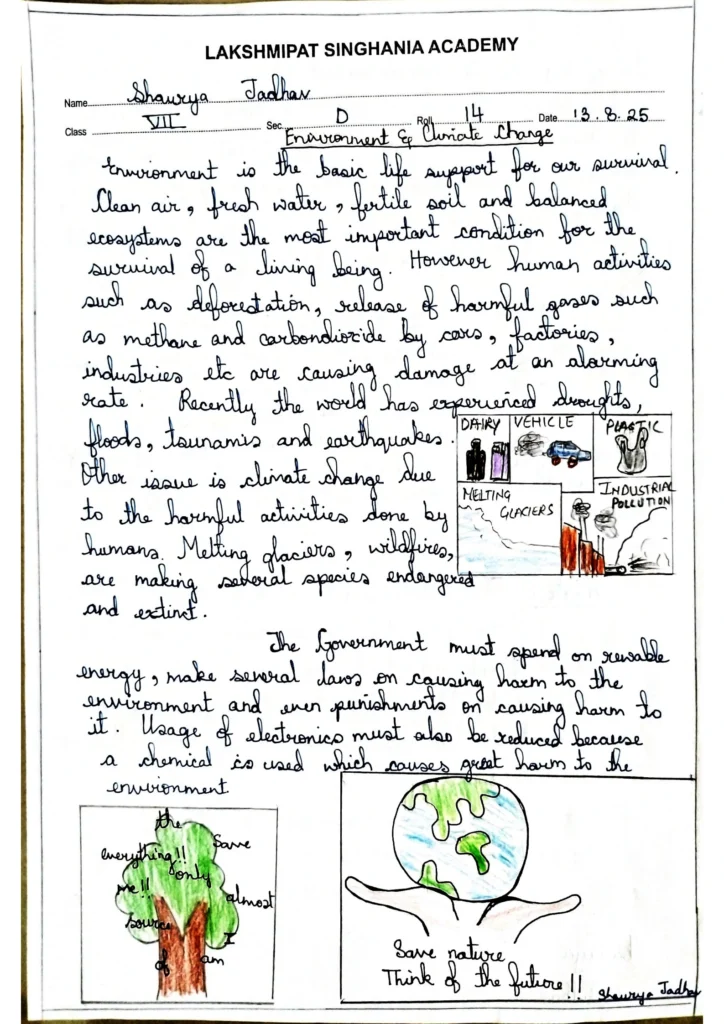 LAKSHMIPAT SINGHANIA ACADEMY
Name Shaurya Jadhav
Class VII Sec D Roll 14 Date 13.8.25
Environment & Climate Change
Environment is the basic life support for our survival.
Clean air, fresh water, fertile soil and balanced
ecosystems are the most important condition for the
survival of a living being. However human activities
such as deforestation, release of harmful gases such
as methane and carbondioxide by cars, factories,
industries etc are causing damage at an alarming
rate. Recently the world has experienced droughts,
floods, tsunamis and earthquakes.
Other issue is climate change due
to the harmful activities done by
humans. Melting glaciers, wildfires,
are making several species endangered
and extinct.
DAIRY VEHICLE PLASTIC
MELTING GLACIERS
INDUSTRIAL POLLUTION
The Government must spend on rewable
energy, make several laws on causing harm to the
environment and even punishments on causing harm to
it. Usage of electronics must also be reduced because
a chemical is used which causes great harm to the
environment
the
Save
everything!!
only
me!!
almost
source
I
of
am
Save nature
Think of the future!!
Shaurya Jadhav